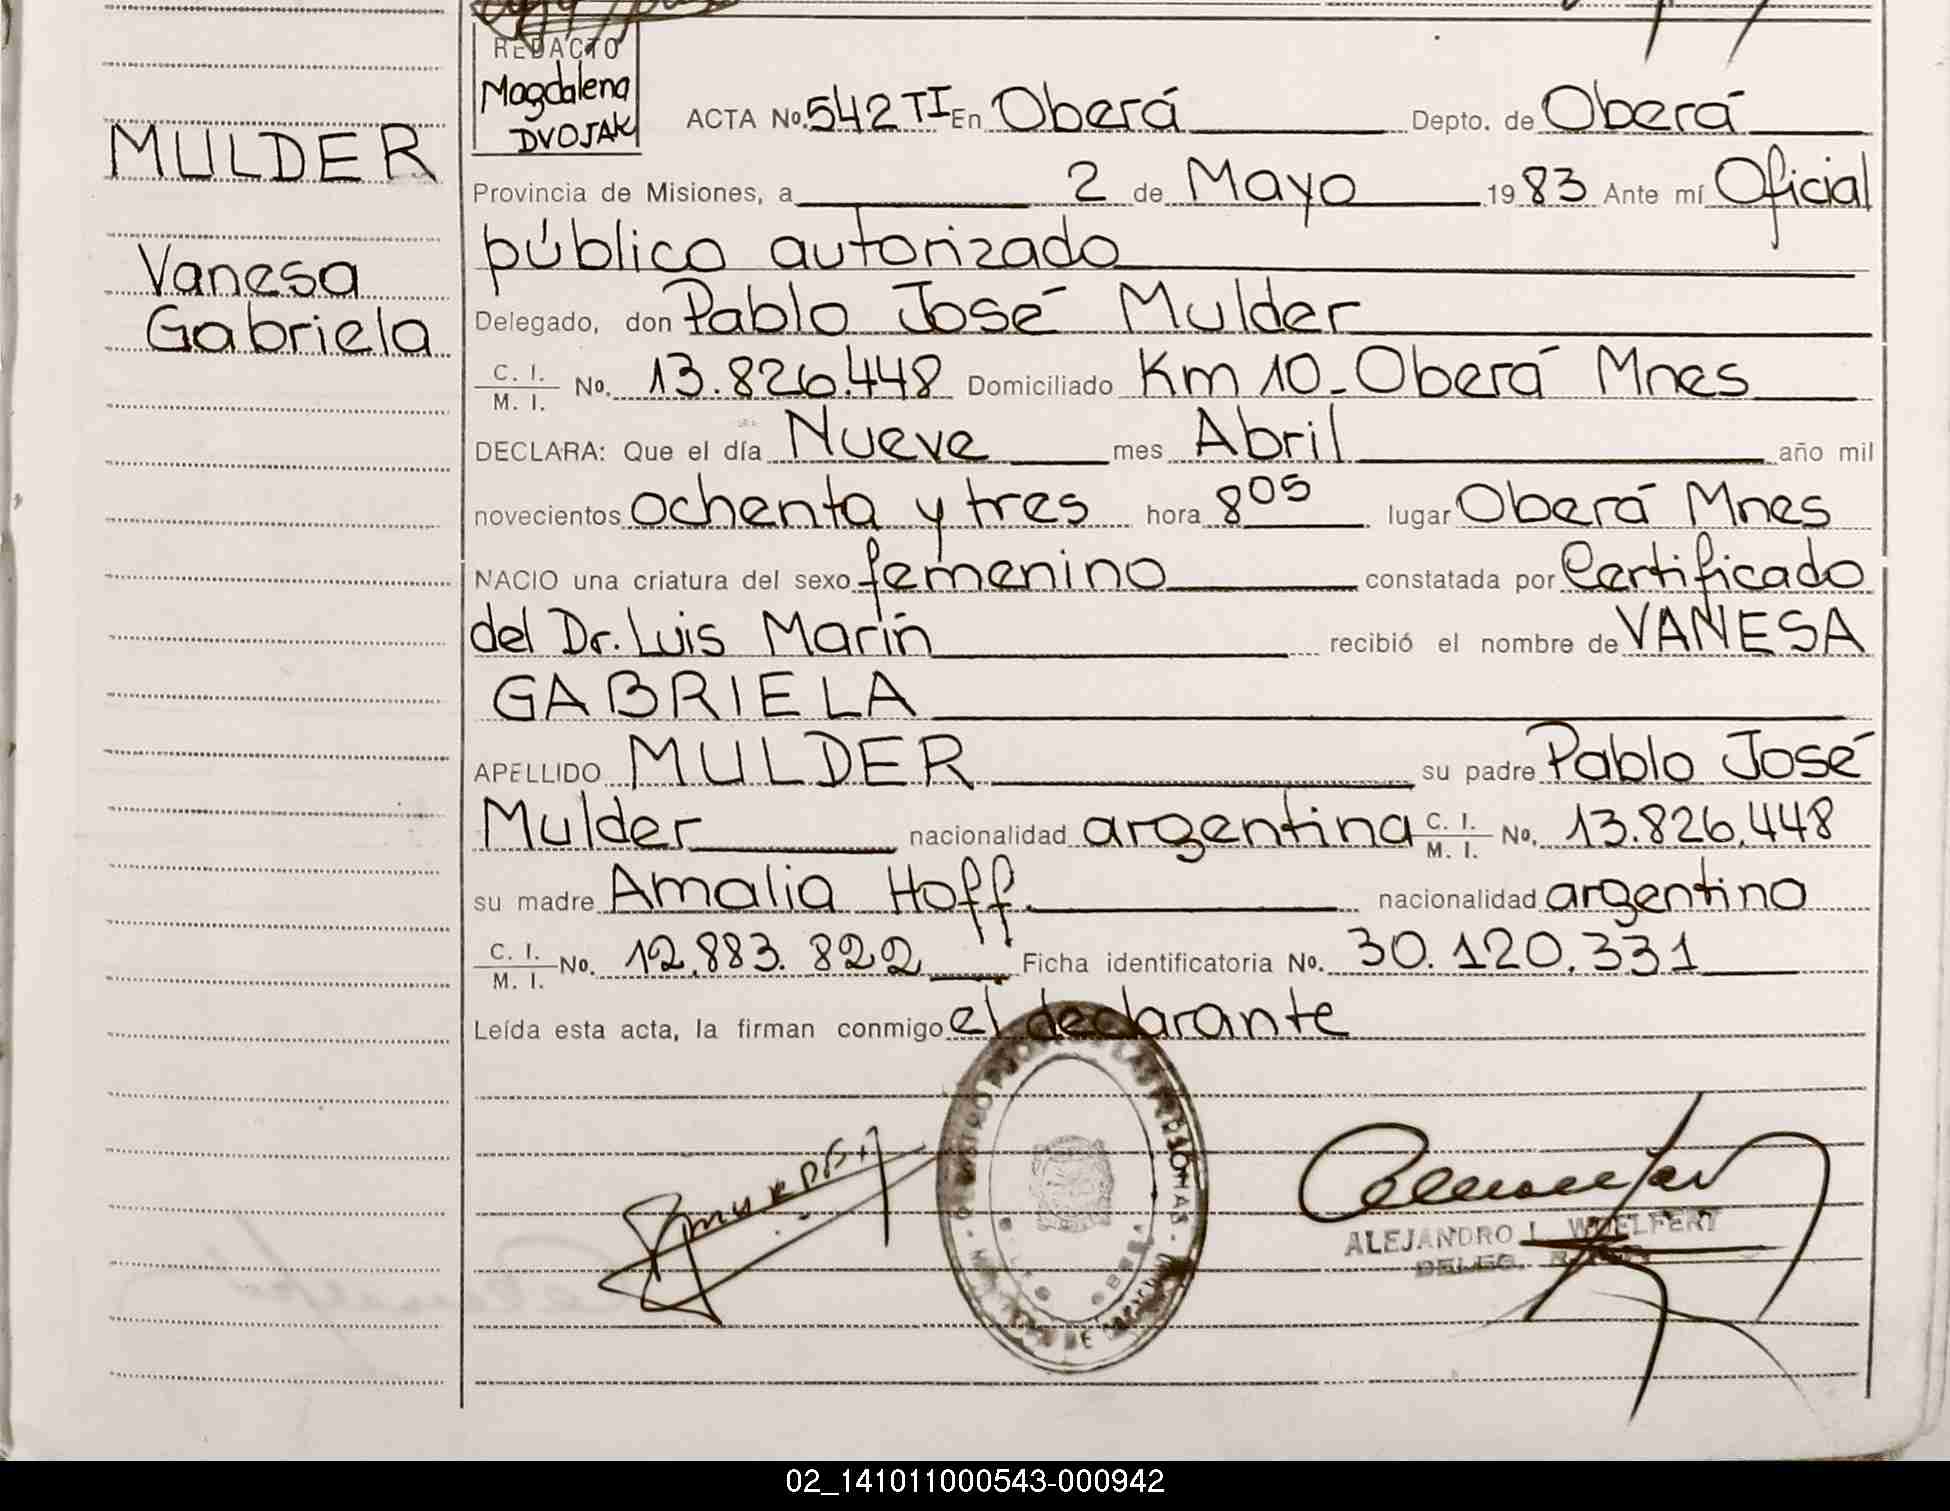 REDACTO
Magdalena
DVOJAK
MULDER
Vanesa
Gabriela
ACTA No. 542 TI En Oberá Depto. de Oberá
Provincia de Misiones, a 2 de Mayo 1983 Ante mí Oficial
público autorizado
Delegado, don Pablo José Mulder
C. I. / M. I. No. 13.826.448 Domiciliado Km 10 - Oberá Mnes
DECLARA: Que el día Nueve mes Abril año mil
novecientos ochenta y tres hora 8 05 lugar Oberá Mnes
NACIO una criatura del sexo femenino constatada por Certificado
del Dr. Luis Marín recibió el nombre de VANESA
GABRIELA
APELLIDO MULDER su padre Pablo José
Mulder nacionalidad argentina C. I. / M. I. No. 13.826.448
su madre Amalia Hoff. nacionalidad argentino
C. I. / M. I. No. 12.883.822 Ficha identificatoria No. 30.120.331
Leída esta acta, la firman conmigo el declarante
ALEJANDRO
02_141011000543-000942